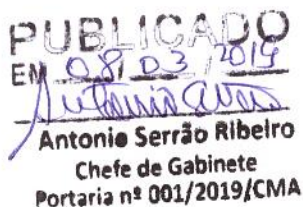 PUBLICADO
EM 08/03/2019
Antonio Serrão Ribeiro
Chefe de Gabinete
Portaria nº 001/2019/CMA